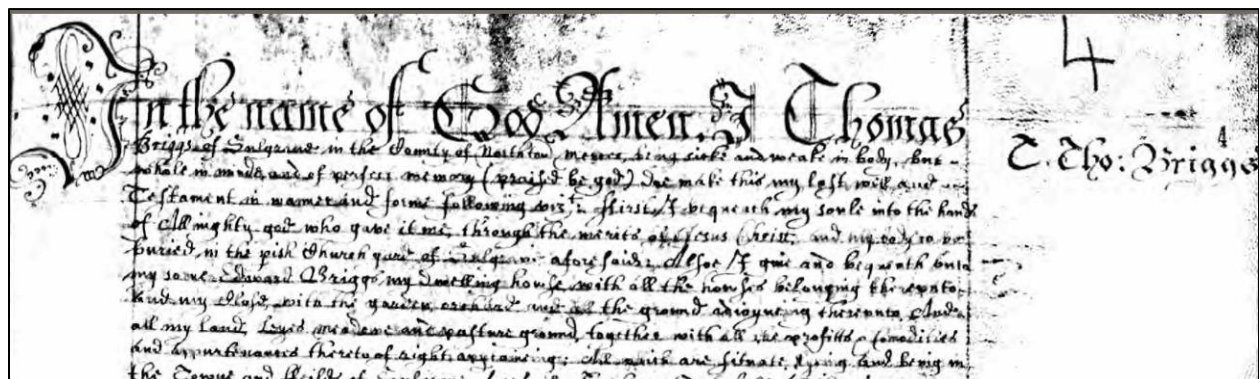 4
In the name of God Amen. I Thomas
T. Tho: Briggs 4
Briggs of Sulgrave in the County of Northton, mercer, being sicke and weake in body, but
whole in minde, and of perfect memory (praised be god) doe make this my last will and
Testament in manner and forme following vizt: ffirst I bequeath my soule into the hands
of Allmighty god who gave it me, through the merits of Jesus Christ; and my body to be
buried in the pish Church yard of Sulgrave aforesaide; Alsoe I give and bequeath unto
my sonne Edward Briggs my dwelling house with all the houses belonging thereunto
And my Close, with the garden orchard and all the ground adioyneing thereunto, And
all my land, Leyes meadowe and pasture ground, together with all the profitts comodities
and appurtenances thereto of right appertaineing: All which are situate, lying and being in
the Towne and ffeilds of